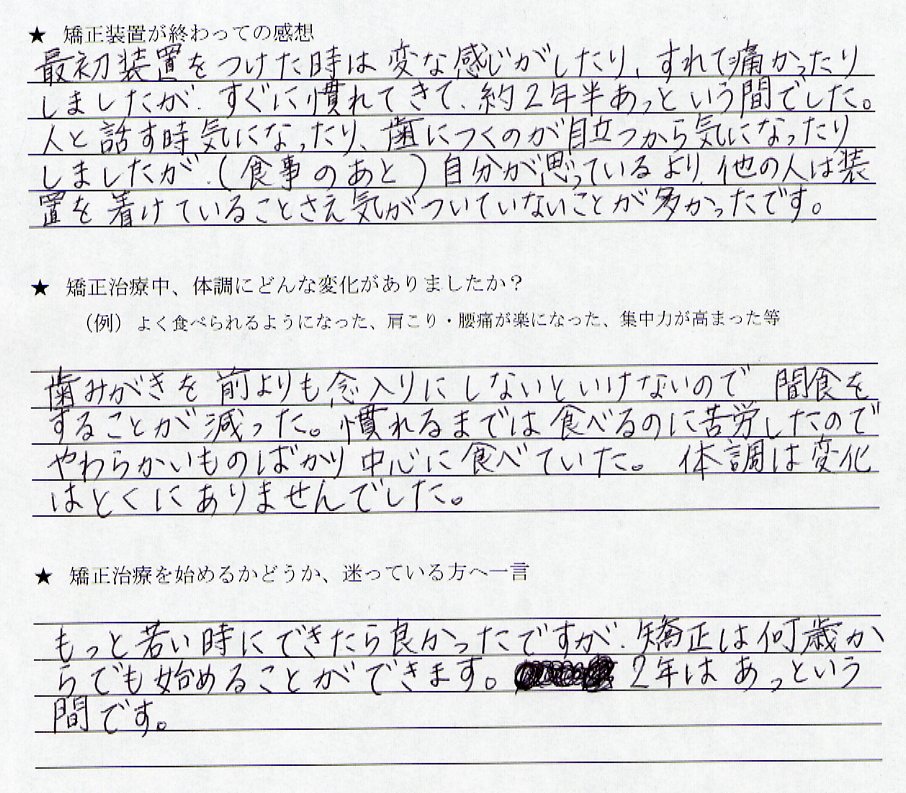 ★ 矯正装置が終わっての感想
最初装置をつけた時は変な感じがしたり、すれて痛かったり
しましたが、すぐに慣れてきて、約2年半あっという間でした。
人と話す時気になったり、歯につくのが目立つから気になったり
しましたが、(食事のあと)自分が思っているより、他の人は装
置を着けていることさえ気がついていないことが多かったです。
★ 矯正治療中、体調にどんな変化がありましたか?
(例)よく食べられるようになった、肩こり・腰痛が楽になった、集中力が高まった等
歯みがきを前よりも念入りにしないといけないので間食を
することが減った。慣れるまでは食べるのに苦労したので
やわらかいものばかり中心に食べていた。体調は変化
はとくにありませんでした。
★ 矯正治療を始めるかどうか、迷っている方へ一言
もっと若い時にできたら良かったですが、矯正は何歳か
らでも始めることができます。 2年はあっという
間です。